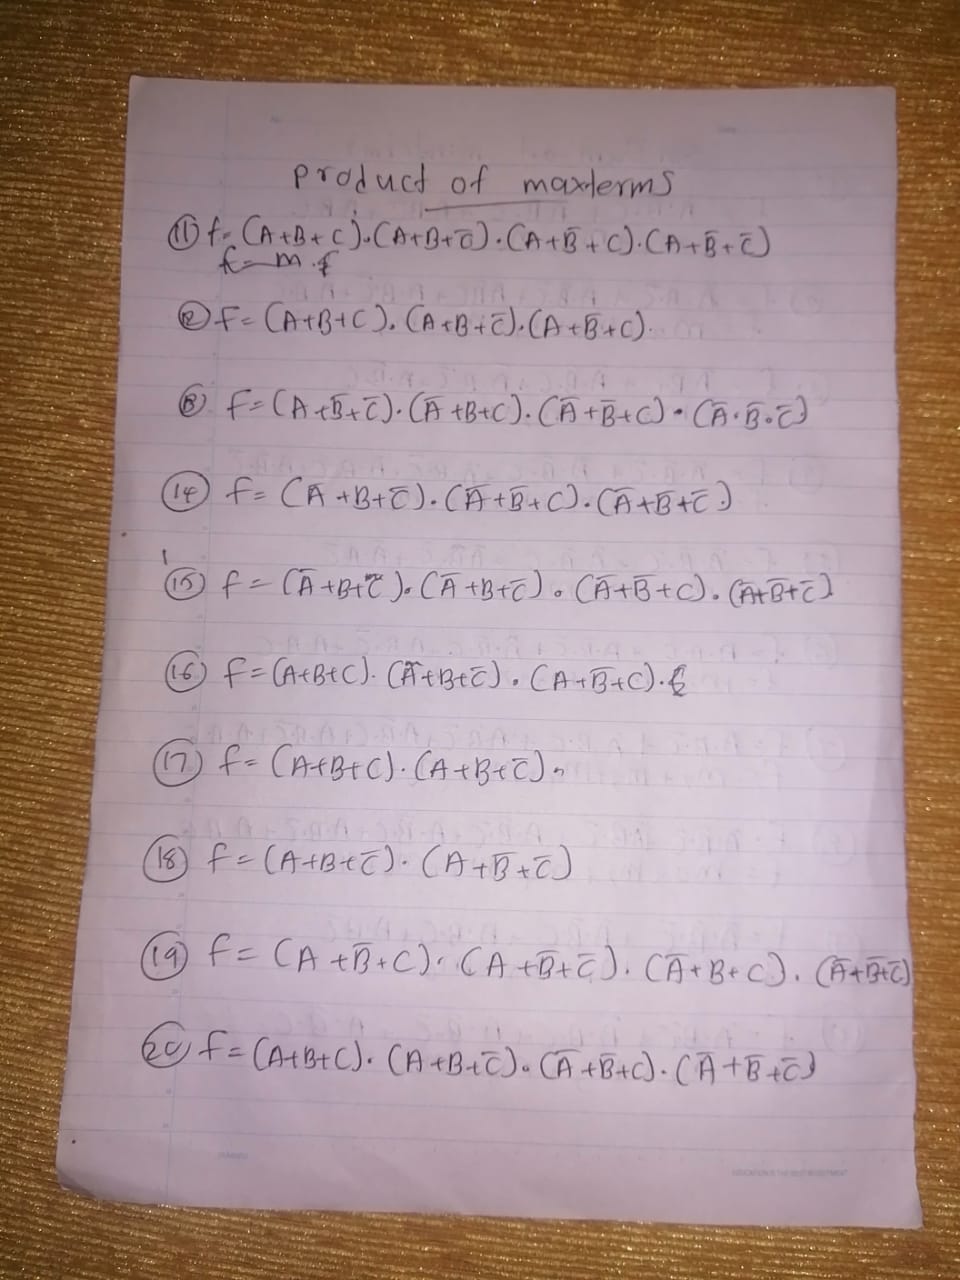 product of maxterms
(11) f = (A+B+C).(A+B+C̄).(A+B̄+C).(A+B̄+C̄)
f = m.f
(12) f = (A+B+C).(A+B+C̄).(A+B̄+C).
(13) f = (A+B̄+C̄).(Ā+B+C).(Ā+B̄+C).(Ā.B̄.C̄)
(14) f = (Ā+B+C̄).(Ā+B̄+C).(Ā+B+C̄.)
(15) f = (Ā+B+C̄).(Ā+B+C̄).(Ā+B̄+C).(Ā+B̄+C̄)
(16) f = (A+B+C).(Ā+B+C̄).(A+B̄+C).
(17) f = (A+B+C).(A+B+C̄).
(18) f = (A+B+C̄).(A+B̄+C̄)
(19) f = (A+B̄+C).(A+B̄+C̄).(Ā+B+C).(Ā+B̄+C̄)
(20) f = (A+B+C).(A+B+C̄).(Ā+B̄+C).(Ā+B̄+C̄)